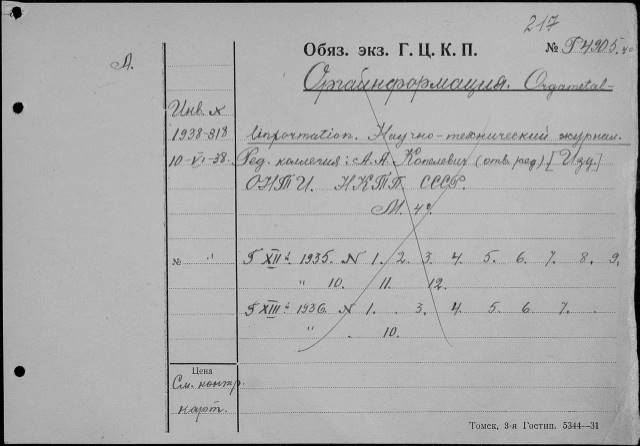 217
Обяз. экз. Г. Ц. К. П. № Г 4905.
А.
Оргаинформация. Orgametal-
Инв. N
1938-318 Information. Научно-технический журнал.
10-VI-38. Ред. коллегия: А.А. Копелевич (отв. ред) [Изд.]
ОНТИ. НКТП. СССР.
М. 4º.
№ " Г XII й 1935. N 1. 2. 3. 4. 5. 6. 7. 8. 9.
" 10. 11. 12.
Г XIII й 1936. N 1. . 3. 4. 5. 6. 7. .
" . 10.
Цена
См. контр.
карт.
Томск, 3-я Гостип. 5344—31